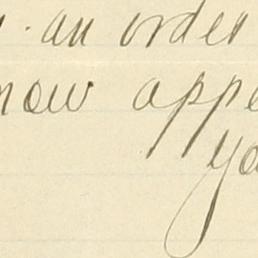 an order
now appe
yo